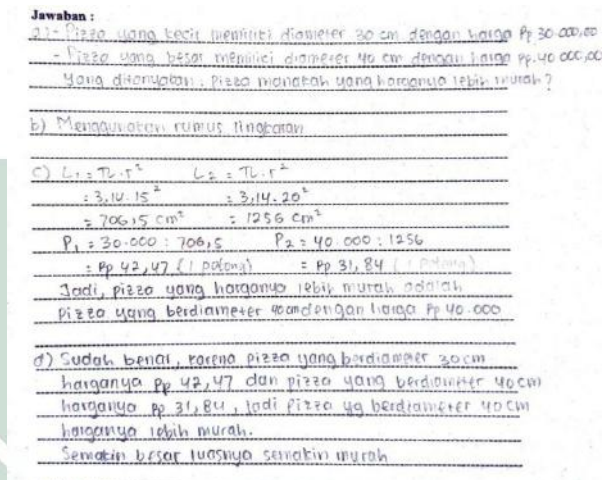 Jawaban :
a) - Pizza yang kecil memiliki diameter 30 cm dengan harga Rp 30.000,00
- Pizza yang besar memiliki diameter 40 cm dengan harga Rp.40.000,00
Yang ditanyakan : Pizza manakah yang harganya lebih murah?
b) Menggunakan rumus lingkaran
c) L₁ = π . r² L₂ = π . r²
= 3,14 . 15² = 3,14 . 20²
= 706,5 cm² = 1256 cm²
P₁ = 30.000 : 706,5 P₂ = 40.000 : 1256
= Rp 42,47 (1 potong) = Rp 31,84 (1 potong)
Jadi, pizza yang harganya lebih murah adalah
pizza yang berdiameter 40 cm dengan harga Rp 40.000
d) Sudah benar, karena pizza yang berdiameter 30 cm
harganya Rp 42,47 dan pizza yang berdiameter 40 cm
harganya Rp 31,84, jadi Pizza yg berdiameter 40 cm
harganya lebih murah.
Semakin besar luasnya semakin murah